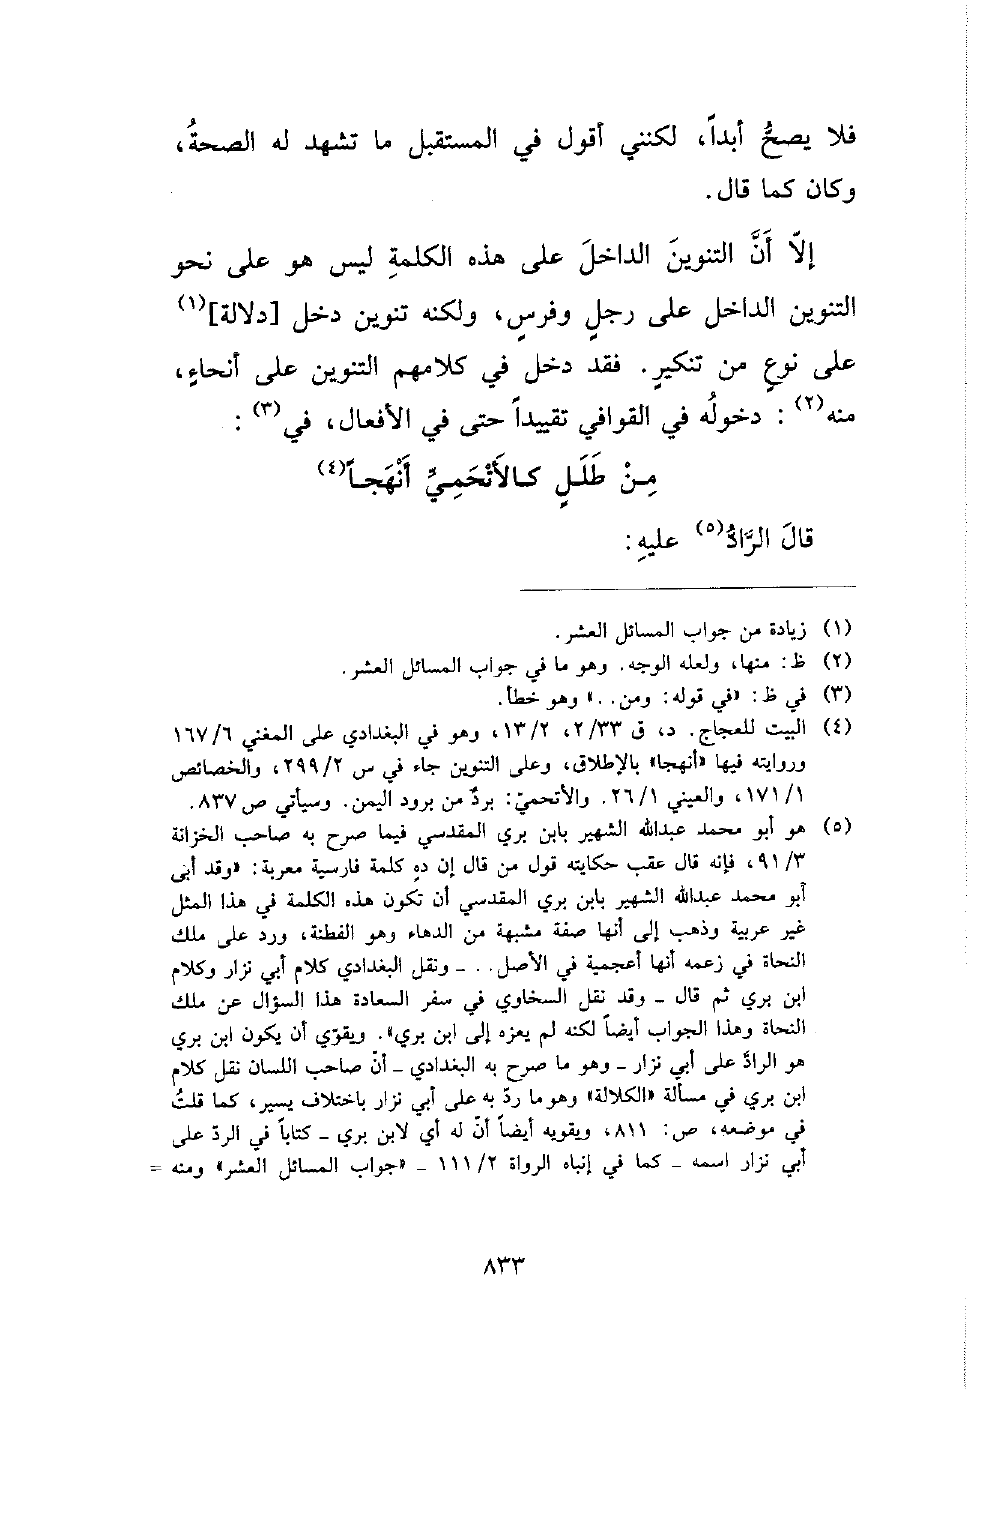 فلا يصحُّ أبداً، لكنني أقول في المستقبل ما تشهد له الصحةُ،
وكان كما قال.
إلاّ أَنَّ التنوينَ الداخلَ على هذه الكلمةِ ليس هو على نحو
التنوين الداخل على رجلٍ وفرسٍ، ولكنه تنوين دخل [دلالة](١)
على نوعٍ من تنكيرٍ. فقد دخل في كلامهم التنوين على أنحاءٍ،
منه(٢) : دخولُه في القوافي تقييداً حتى في الأفعال، في(٣) :
مِـنْ طَلَـلٍ كـالأَتْحَمِـيِّ أَنْهَجـاً(٤)
قالَ الرَّادُّ(٥) عليهِ:
(١) زيادة من جواب المسائل العشر.
(٢) ظ: منها، ولعله الوجه. وهو ما في جواب المسائل العشر.
(٣) في ظ: «في قوله: ومن..» وهو خطأ.
(٤) البيت للعجاج. د، ق ٢/٣٣، ١٣/٢، وهو في البغدادي على المغني ١٦٧/٦
وروايته فيها «أنهجا» بالإطلاق، وعلى التنوين جاء في س ٢٩٩/٢، والخصائص
١٧١/١، والعيني ٢٦/١. والأتحميّ: بردٌ من برود اليمن. وسيأتي ص٨٣٧.
(٥) هو أبو محمد عبدالله الشهير بابن بري المقدسي فيما صرح به صاحب الخزانة
٩١/٣، فإنه قال عقب حكايته قول من قال إن دهٍ كلمة فارسية معربة: «وقد أبى
أبو محمد عبدالله الشهير بابن بري المقدسي أن تكون هذه الكلمة في هذا المثل
غير عربية وذهب إلى أنها صفة مشبهة من الدهاء وهو الفطنة، ورد على ملك
النحاة في زعمه أنها أعجمية في الأصل.. ـ ونقل البغدادي كلام أبي نزار وكلام
ابن بري ثم قال ـ وقد نقل السخاوي في سفر السعادة هذا السؤال عن ملك
النحاة وهذا الجواب أيضاً لكنه لم يعزه إلى ابن بري». ويقوّي أن يكون ابن بري
هو الرادّ على أبي نزار ـ وهو ما صرح به البغدادي ـ أنّ صاحب اللسان نقل كلام
ابن بري في مسألة «الكلالة» وهو ما ردّ به على أبي نزار باختلاف يسير، كما قلتُ
في موضعه، ص: ٨١١، ويقويه أيضاً أنّ له أي لابن بري ـ كتاباً في الردّ على
أبي نزار اسمه ـ كما في إنباه الرواة ١١١/٢ ـ «جواب المسائل العشر» ومنه =
٨٣٣